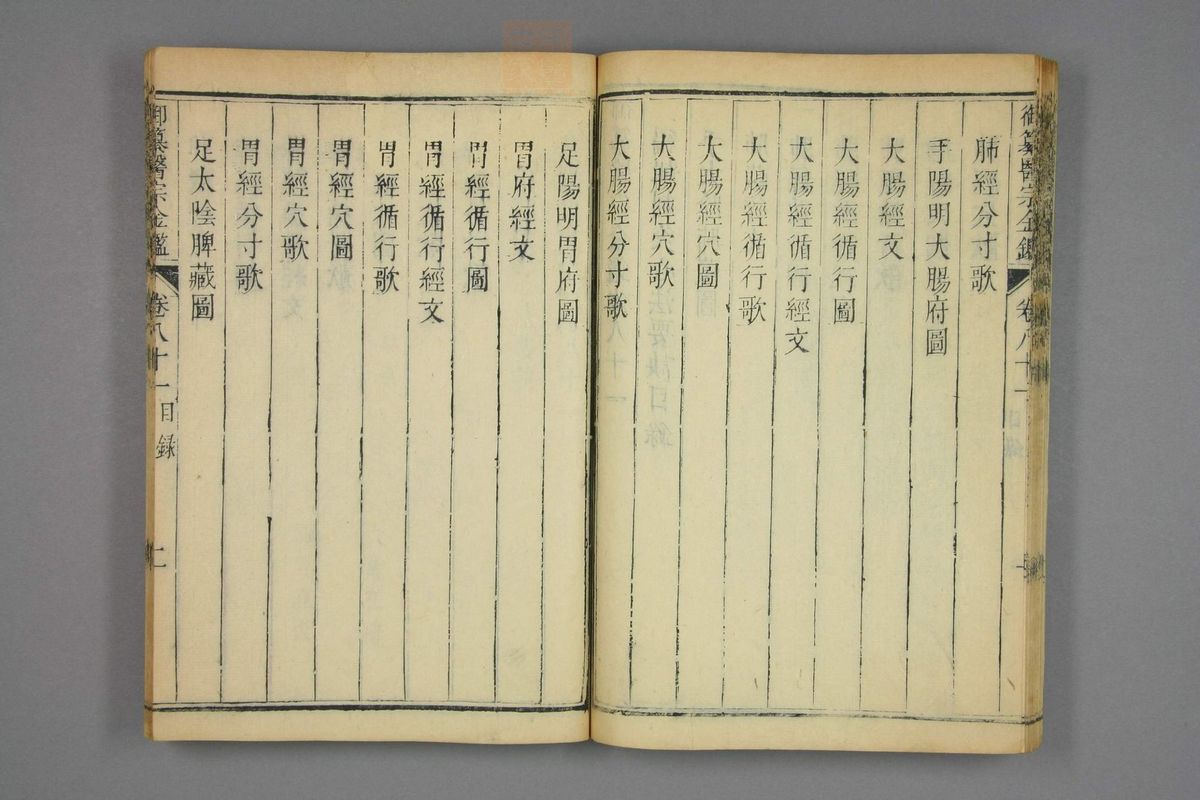 御纂醫宗金鑑 卷八十一
肺經分寸歌
手陽明大腸府圖
大腸經文
大腸經循行圖
大腸經循行經文
大腸經循行歌
大腸經穴圖
大腸經穴歌
大腸經分寸歌
足陽明胃府圖
胃府經文
胃經循行圖
胃經循行經文
胃經循行歌
胃經穴圖
胃經穴歌
胃經分寸歌
足太陰脾藏圖
御纂醫宗金鑑 卷八十一 目録